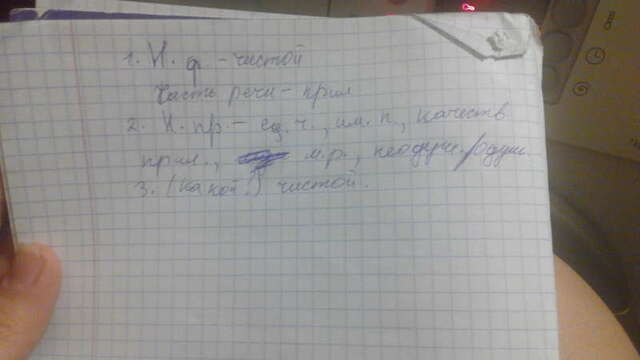 1. Н. ф. - чистой
Часть речи - прил
2. Н. пр. - ед. ч., им. п., качеств
прил., м.р., неодуш./одуш.
3. (Какой?) чистой.